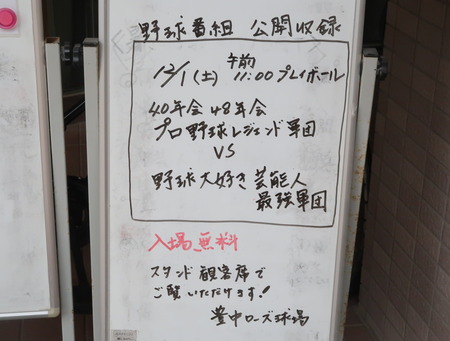 野球番組 公開収録
12/1(土) 午前11:00 プレイボール
40年会 48年会
プロ野球レジェンド軍団
VS
野球大好き芸能人
最強軍団
入場無料
スタンド観客席で
ご覧いただけます!
豊中ローズ球場